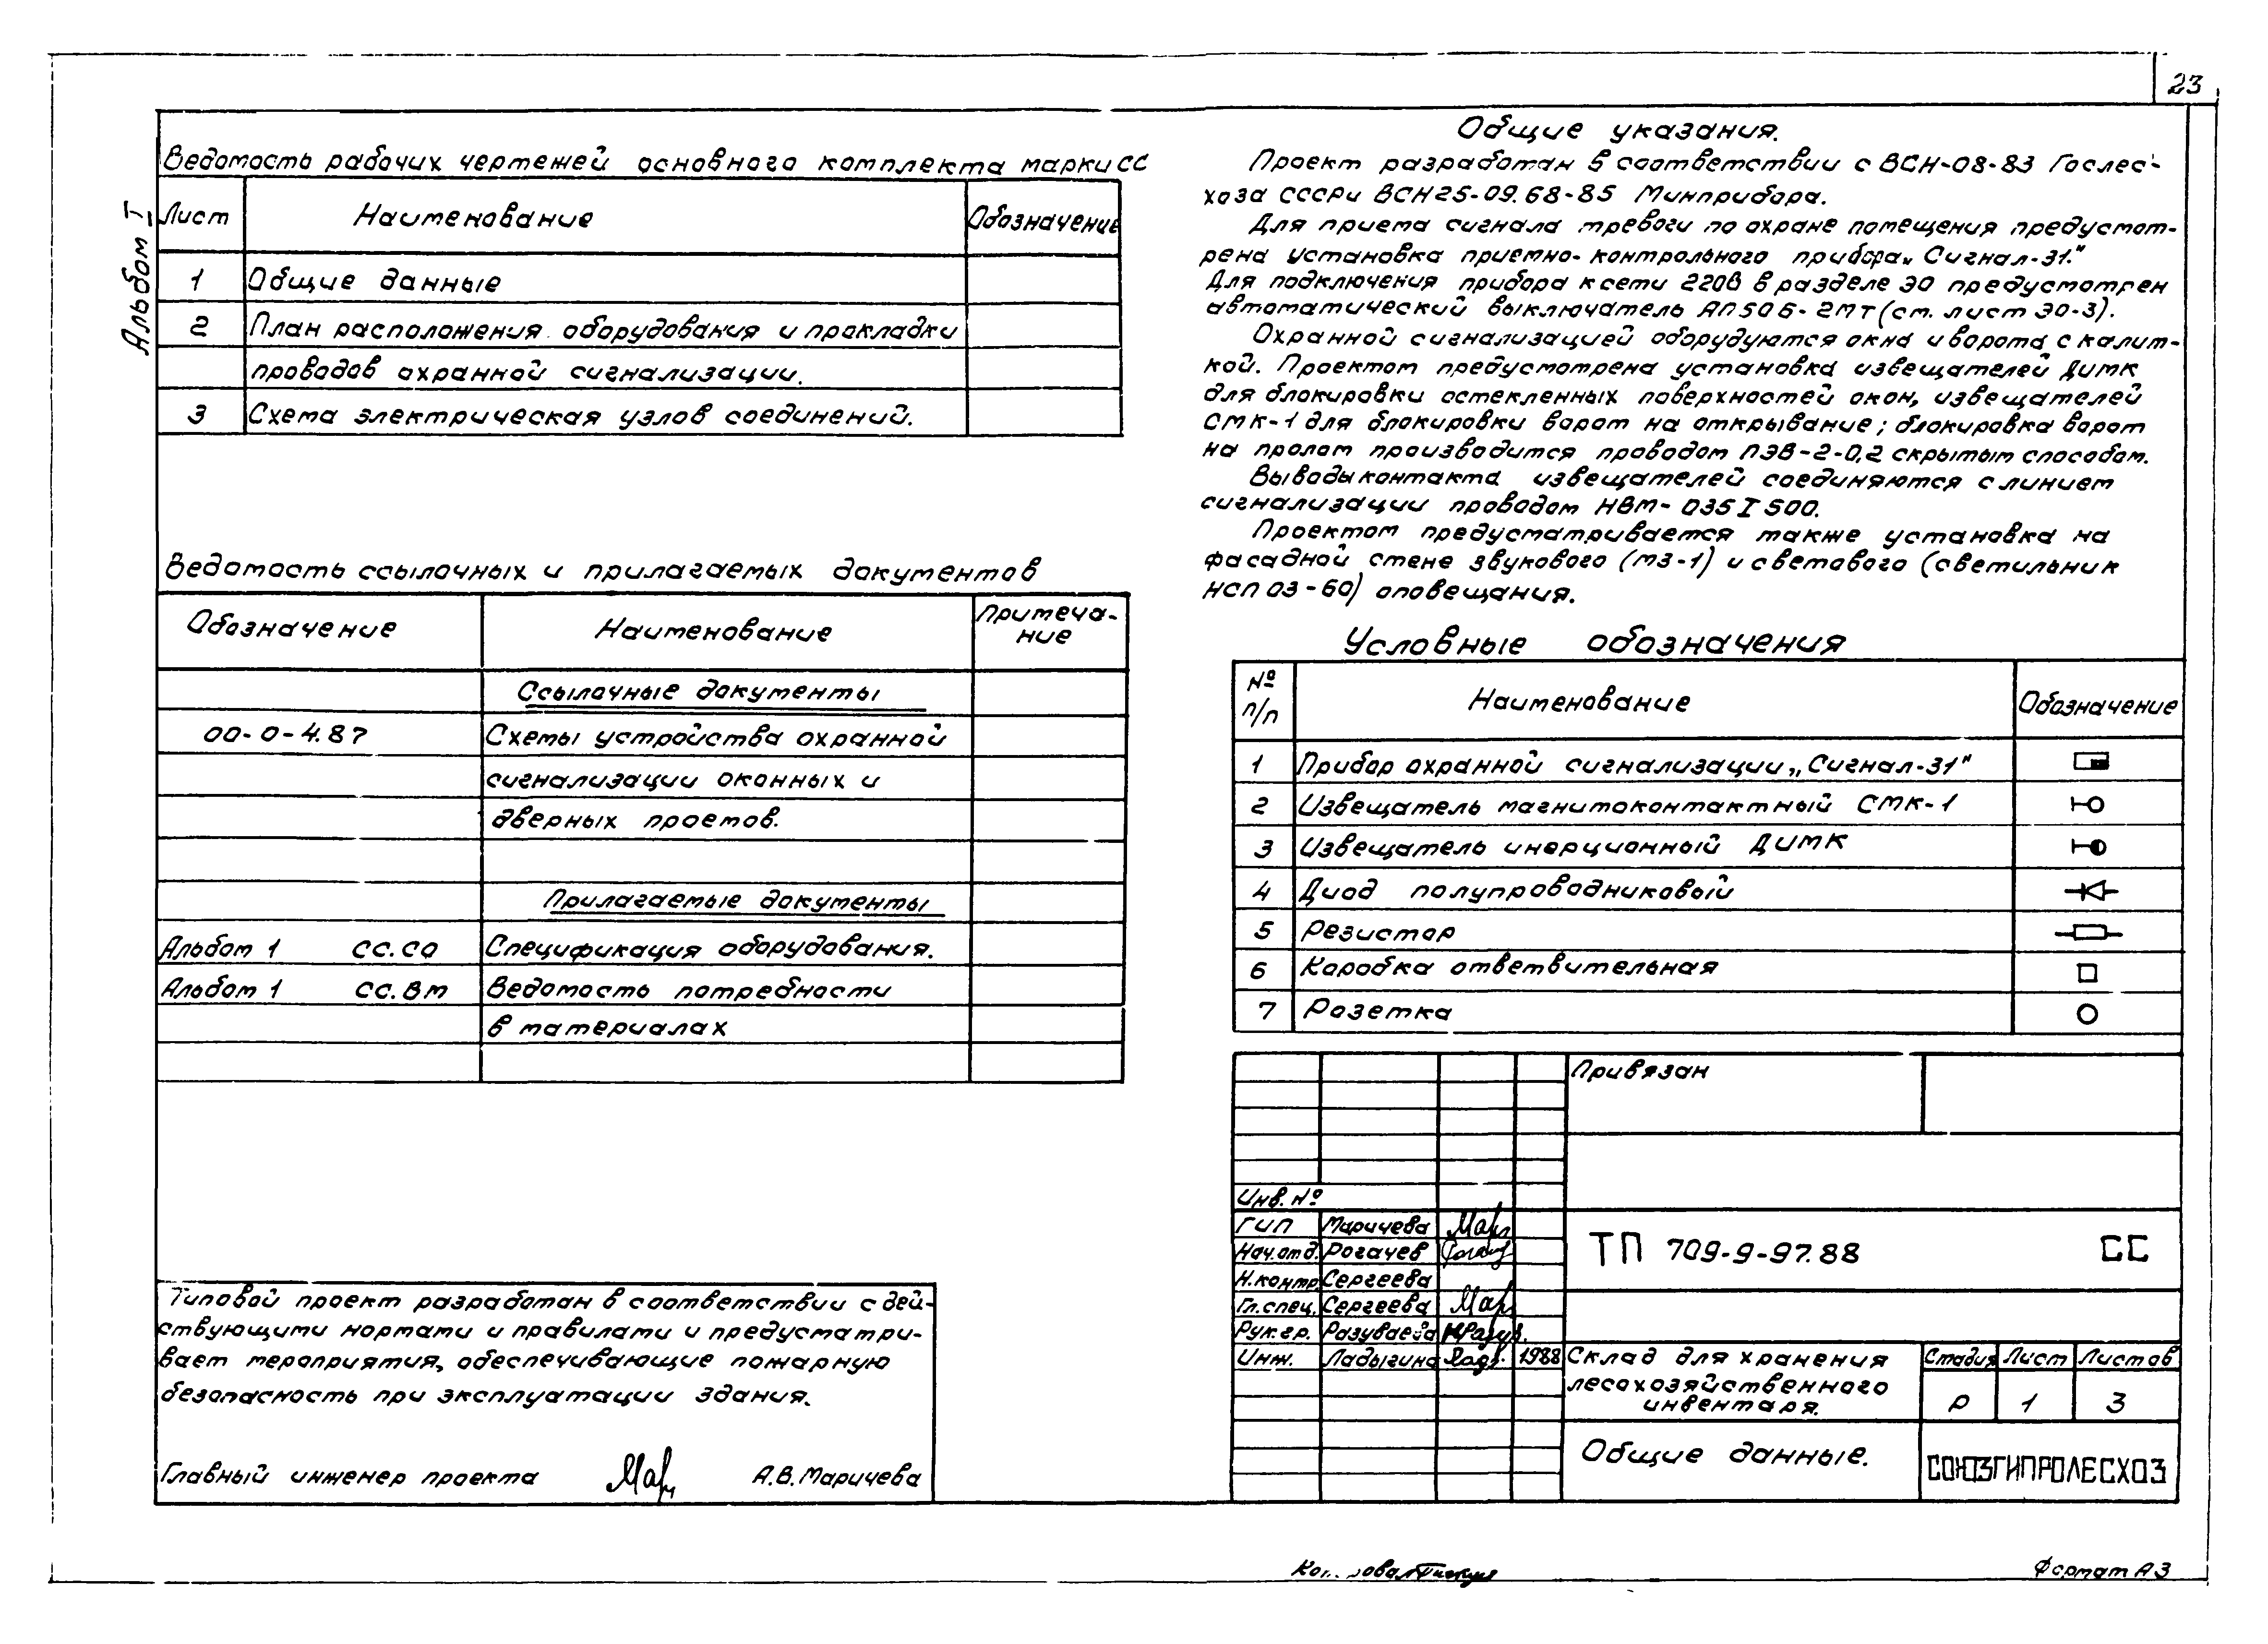 23
Альбом I
Ведомость рабочих чертежей основного комплекта марки СС
Лист Наименование Обозначение
1 Общие данные
2 План расположения оборудования и прокладки
проводов охранной сигнализации.
3 Схема электрическая узлов соединений.
Ведомость ссылочных и прилагаемых документов
Обозначение Наименование Примеча-
ние
Ссылочные документы
00-0-4.87 Схемы устройства охранной
сигнализации оконных и
дверных проемов.
Прилагаемые документы
Альбом 1 СС.СО Спецификация оборудования.
Альбом 1 СС.ВМ Ведомость потребности
в материалах
Типовой проект разработан в соответствии с дей-
ствующими нормами и правилами и предусматри-
вает мероприятия, обеспечивающие пожарную
безопасность при эксплуатации здания.
Главный инженер проекта А.В.Маричева
Общие указания.
Проект разработан в соответствии с ВСН-08-83 Гослес-
хоза СССР и ВСН25-09.68-85 Минприбора.
Для приема сигнала тревоги по охране помещения предусмот-
рена установка приемно-контрольного прибора „Сигнал-31."
Для подключения прибора к сети 220В в разделе ЭО предусмотрен
автоматический выключатель АП50Б-2МТ (см. лист ЭО-3).
Охранной сигнализацией оборудуются окна и ворота с калит-
кой. Проектом предусмотрена установка извещателей ДИМК
для блокировки остекленных поверхностей окон, извещателей
СМК-1 для блокировки ворот на открывание; блокировка ворот
на пролом производится проводом ПЭВ-2-0,2 скрытым способом.
Выводы контакта извещателей соединяются с линией
сигнализации проводом НВМ-035 I 500.
Проектом предусматривается также установка на
фасадной стене звукового (МЗ-1) и светового (светильник
НСП 03-60) оповещания.
Условные обозначения
№
п/п Наименование Обозначение
1 Прибор охранной сигнализации „Сигнал-31"
2 Извещатель магнитоконтактный СМК-1
3 Извещатель инерционный ДИМК
4 Диод полупроводниковый
5 Резистор
6 Коробка ответвительная
7 Розетка
Привязан
Инв. №
ГИП Маричева
Нач.отд. Рогачев
Н.контр. Сергеева
Гл.спец. Сергеева
Рук.гр. Разуваева
Инж. Ладыгина 1988
ТП 709-9-97.88 СС
Склад для хранения
лесохозяйственного
инвентаря.
Стадия Лист Листов
Р 1 3
Общие данные.
СОЮЗГИПРОЛЕСХОЗ
Формат А3